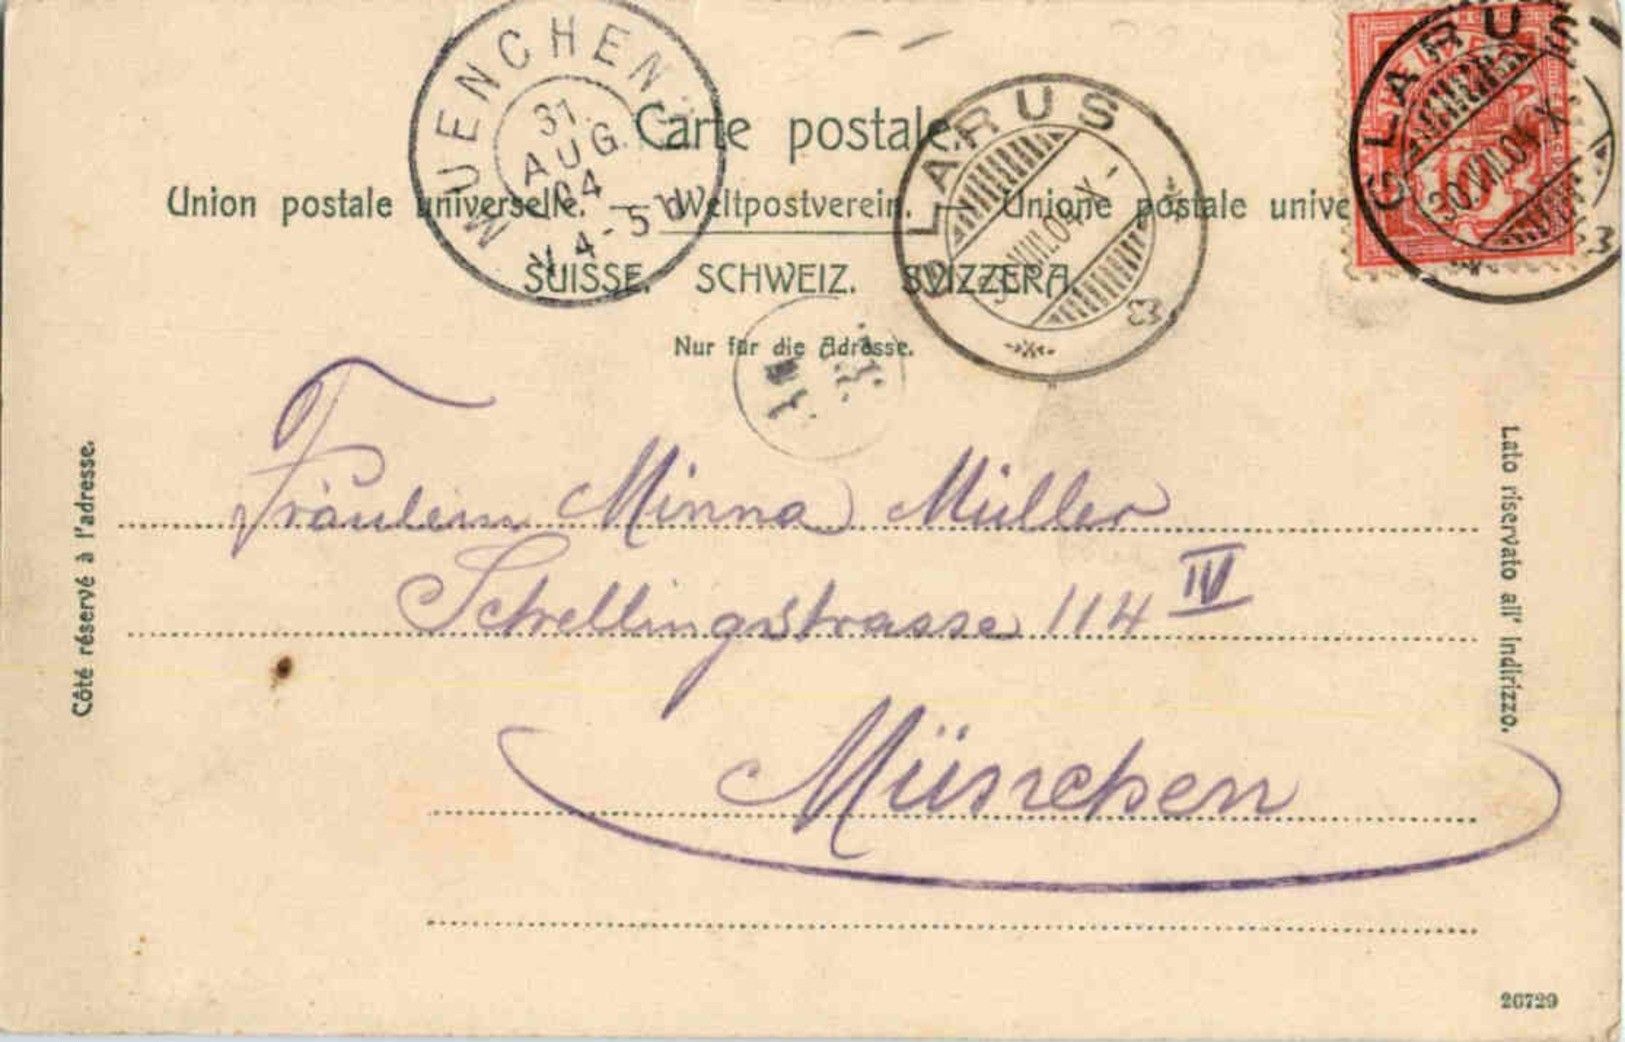 Carte postale.
Union postale universelle. — Weltpostverein. — Unione postale unive
SUISSE. SCHWEIZ. SVIZZERA.
Nur für die Adresse.
MUENCHEN
31.
AUG.
04
V 4-5
GLARUS
VIII.04.X-
GLARUS
30.VIII.04.X
Côté réservé à l'adresse.
Lato riservato all' indirizzo.
Fräulein Minna Müller
Schellingstrasse 114 IV
München
26729